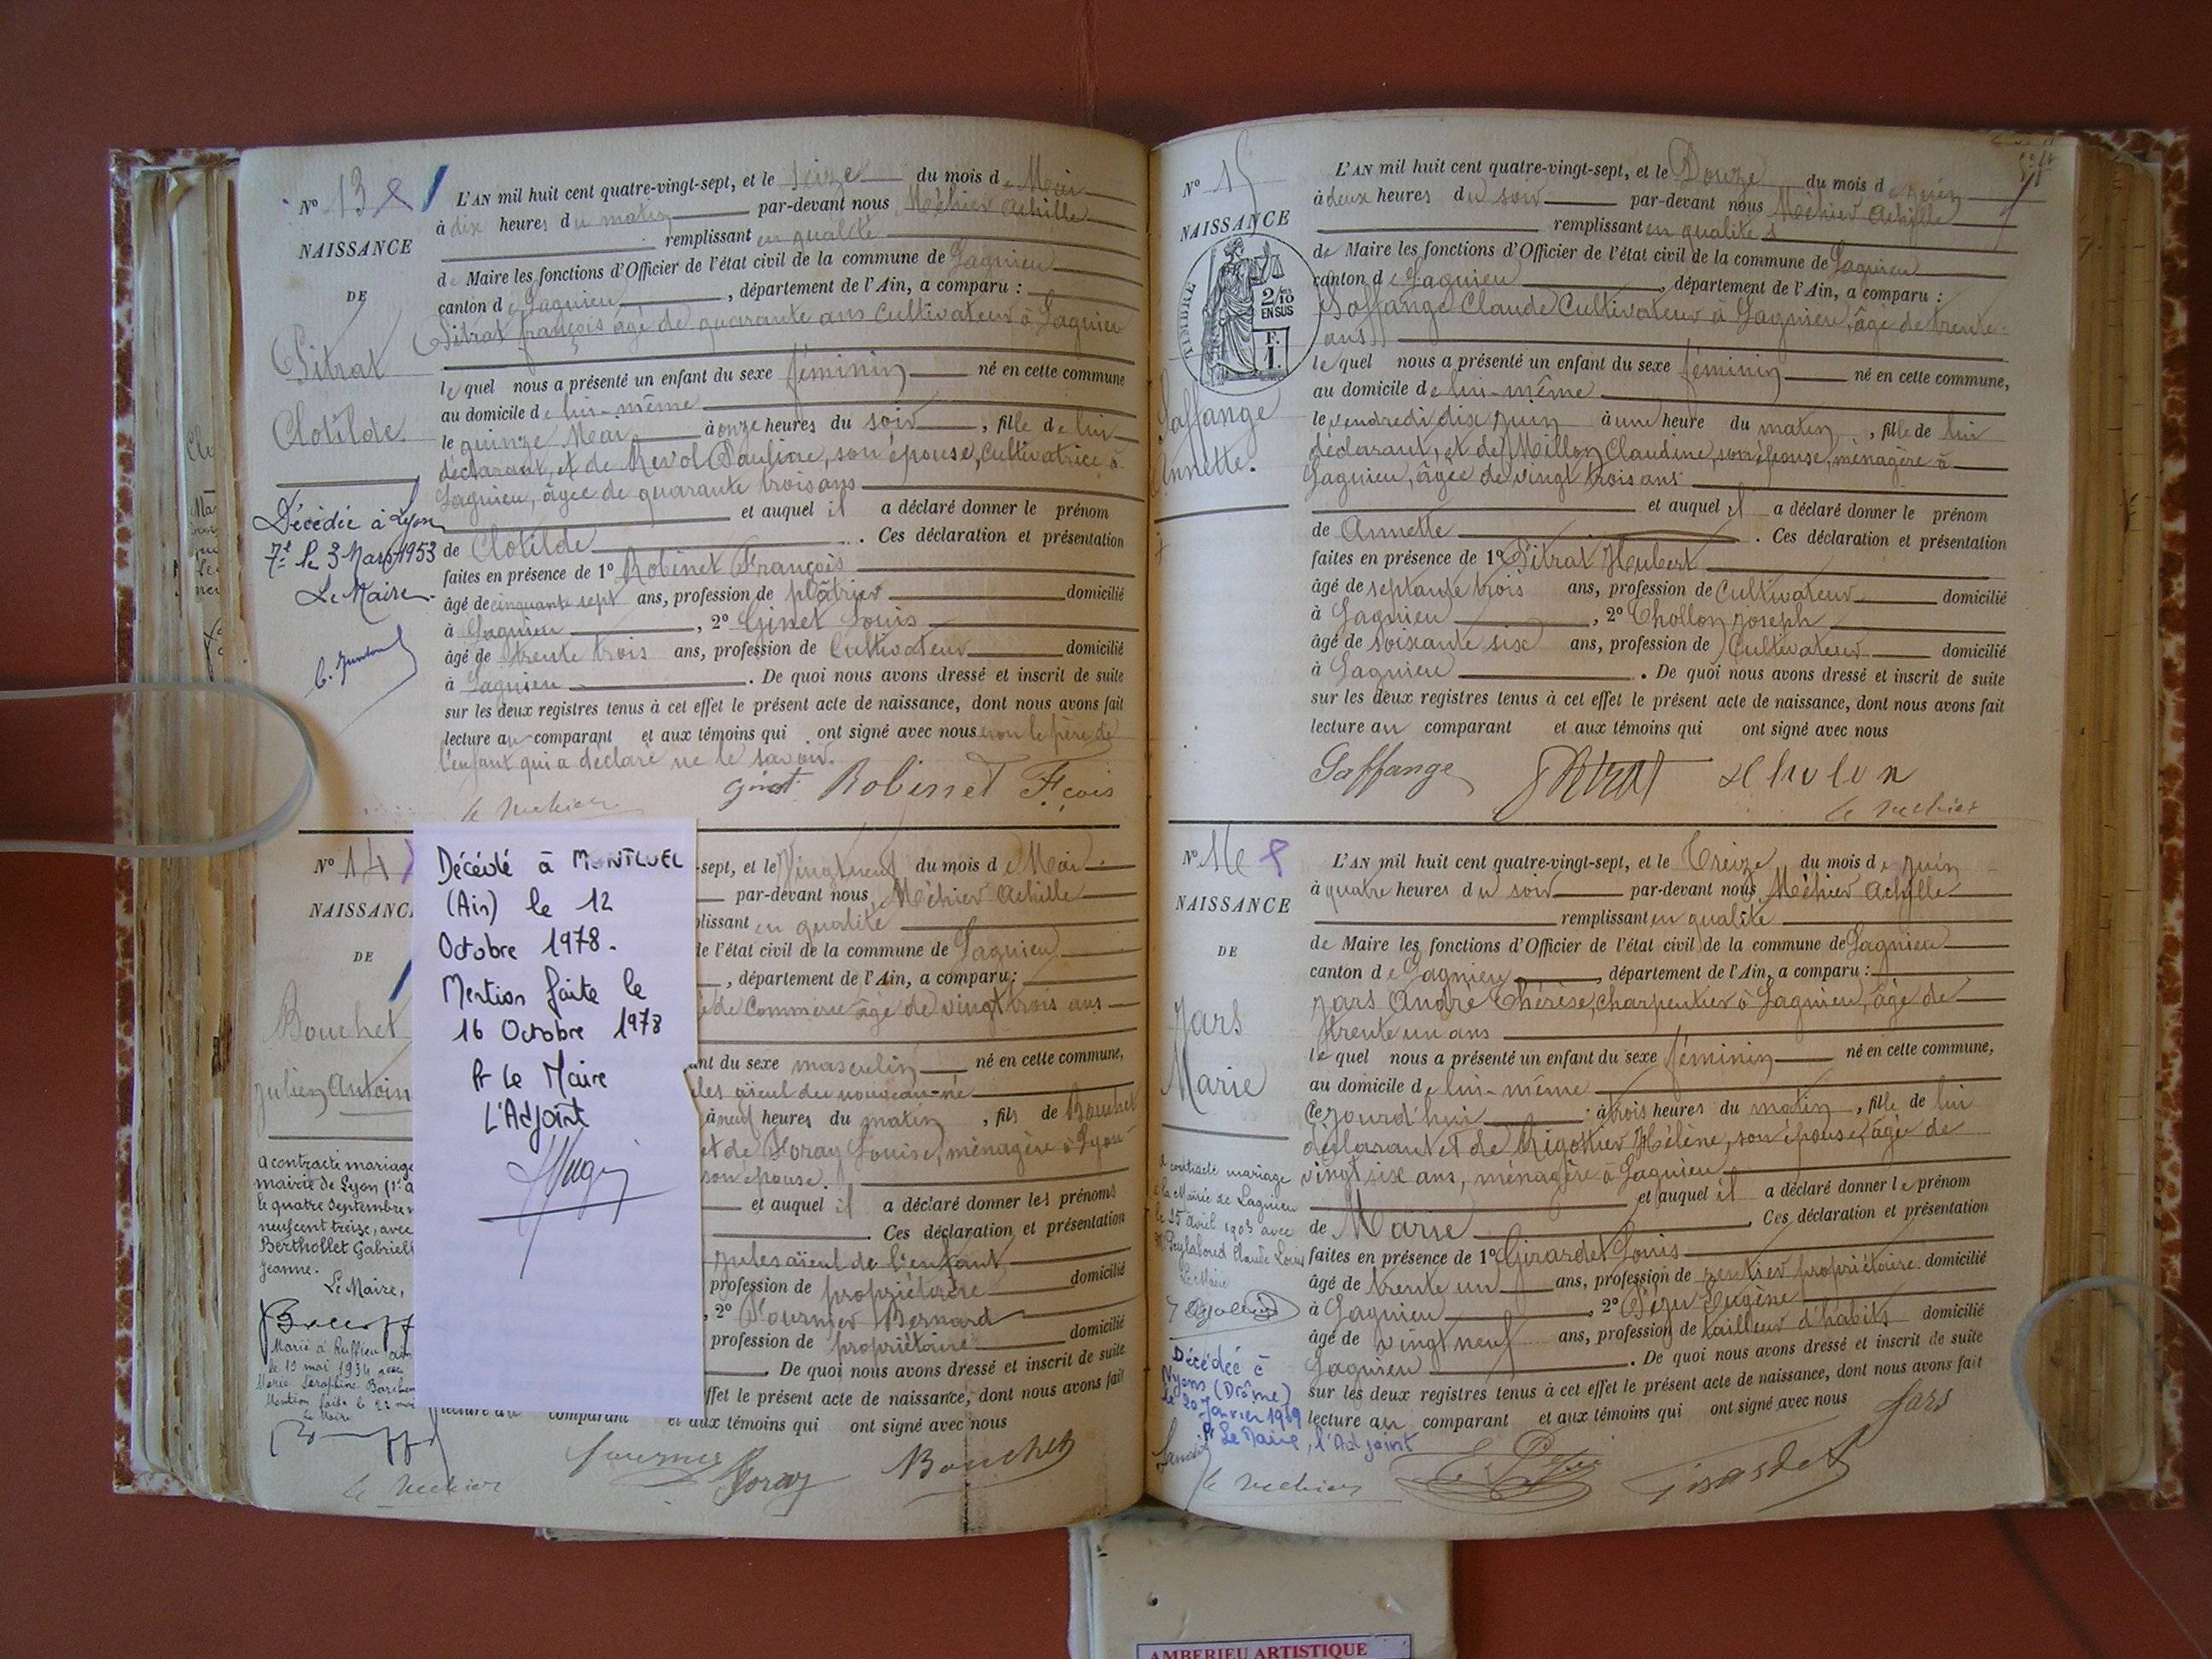 N° 13
NAISSANCE
DE
Pitrat
Clotilde.
Décédée à Lyon
7e le 3 Mars 1953
Le Maire.
L'AN mil huit cent quatre-vingt-sept, et le seize du mois de Mai
à dix heures du matin par-devant nous Méhier Achille
remplissant en qualité
de Maire les fonctions d'Officier de l'état civil de la commune de Lagnieu
canton de Lagnieu, département de l'Ain, a comparu :
Pitrat françois âgé de quarante ans Cultivateur à Lagnieu
lequel nous a présenté un enfant du sexe féminin né en cette commune
au domicile de lui-même
le quinze Mai à onze heures du soir, fille de lui
déclarant, et de Revol Pauline, son épouse, Cultivatrice à
Lagnieu, âgée de quarante trois ans
et auquel il a déclaré donner le prénom
de Clotilde. Ces déclaration et présentation
faites en présence de 1° Robinet François
âgé de cinquante sept ans, profession de plâtrier domicilié
à Lagnieu, 2° Ginet Louis
âgé de trente trois ans, profession de Cultivateur domicilié
à Lagnieu. De quoi nous avons dressé et inscrit de suite
sur les deux registres tenus à cet effet le présent acte de naissance, dont nous avons fait
lecture au comparant et aux témoins qui ont signé avec nous non le père de
l'enfant qui a déclaré ne le savoir.
ginet Robinet Fçois
A Méhier
N° 14
NAISSANCE
DE
Bouchet
Julien Antoin
a contracté mariage
mairie de Lyon (1er a
le quatre septembre
neuf cent treize, avec
Berthollet Gabriell
Jeanne.
Le Maire,
Marié à Ruffieu Ain
le 19 mai 1934 avec
Marie Séraphine
Mention faite le 22 mai
Le Maire
Décédé à MONTLUEL
(Ain) le 12
Octobre 1978.
Mention faite le
16 Octobre 1978
Pr Le Maire
L'Adjoint
-sept, et le Vingt neuf du mois de Mai
par-devant nous, Méhier Achille
plissant en qualité
de l'état civil de la commune de Lagnieu
, département de l'Ain, a comparu :
é de Commerce âgé de vingt trois ans
ant du sexe masculin né en cette commune,
les aïeul du nouveau-né
à neuf heures du matin, fils de Bouchet
et de Foray Louise, ménagère à Lyon
son épouse.
et auquel il a déclaré donner les prénoms
Ces déclaration et présentation
Jules aïeul de l'enfant
profession de propriétaire domicilié
, 2° Fournier Bernard
profession de propriétaire domicilié
. De quoi nous avons dressé et inscrit de suite
effet le présent acte de naissance, dont nous avons fait
lecture au comparant et aux témoins qui ont signé avec nous
fournier Foray Bouchet
A Méhier
N° 15
NAISSANCE
TIMBRE
2/10
EN SUS
F.
1.
Saffange
Annette.
L'AN mil huit cent quatre-vingt-sept, et le Douze du mois de Juin
à deux heures du soir par-devant nous Méhier Achille
remplissant en qualité
de Maire les fonctions d'Officier de l'état civil de la commune de Lagnieu
canton de Lagnieu, département de l'Ain, a comparu :
Saffange Claude Cultivateur à Lagnieu, âgé de trente
ans
lequel nous a présenté un enfant du sexe féminin né en cette commune,
au domicile de lui-même
le vendredi dix Juin à une heure du matin, fille de lui
déclarant, et de Millon Claudine, son épouse, ménagère à
Lagnieu, âgée de vingt trois ans
et auquel il a déclaré donner le prénom
de Annette. Ces déclaration et présentation
faites en présence de 1° Pitrat Hubert
âgé de septante trois ans, profession de Cultivateur domicilié
à Lagnieu, 2° Chollon Joseph
âgé de soixante six ans, profession de Cultivateur domicilié
à Lagnieu. De quoi nous avons dressé et inscrit de suite
sur les deux registres tenus à cet effet le présent acte de naissance, dont nous avons fait
lecture au comparant et aux témoins qui ont signé avec nous
Saffange Pitrat
A Méhier
N° 16
NAISSANCE
DE
Jars
Marie
A contracté mariage
à la Mairie de Lagnieu
le 25 avril 1903 avec
Claude Louis
Le Maire
Décédée à
Nyons (Drôme)
le 20 Janvier 1969
Pr Le Maire, l'Adjoint
L'AN mil huit cent quatre-vingt-sept, et le Treize du mois de Juin
à quatre heures du soir par-devant nous Méhier Achille
remplissant en qualité
de Maire les fonctions d'Officier de l'état civil de la commune de Lagnieu
canton de Lagnieu, département de l'Ain, a comparu :
Jars André Thérèse, charpentier à Lagnieu, âgé de
trente un ans
lequel nous a présenté un enfant du sexe féminin né en cette commune,
au domicile de lui-même
Cejourd'hui à trois heures du matin, fille de lui
déclarant et de Rigottier Hélène, son épouse, âgée de
vingt six ans, ménagère à Lagnieu
et auquel il a déclaré donner le prénom
de Marie. Ces déclaration et présentation
faites en présence de 1° Girardet Louis
âgé de trente un ans, profession de rentier propriétaire domicilié
à Lagnieu, 2° Eugène
âgé de vingt neuf ans, profession de tailleur d'habits domicilié
Lagnieu. De quoi nous avons dressé et inscrit de suite
sur les deux registres tenus à cet effet le présent acte de naissance, dont nous avons fait
lecture au comparant et aux témoins qui ont signé avec nous Jars
A Méhier Girardet
AMBERIEU ARTISTIQUE